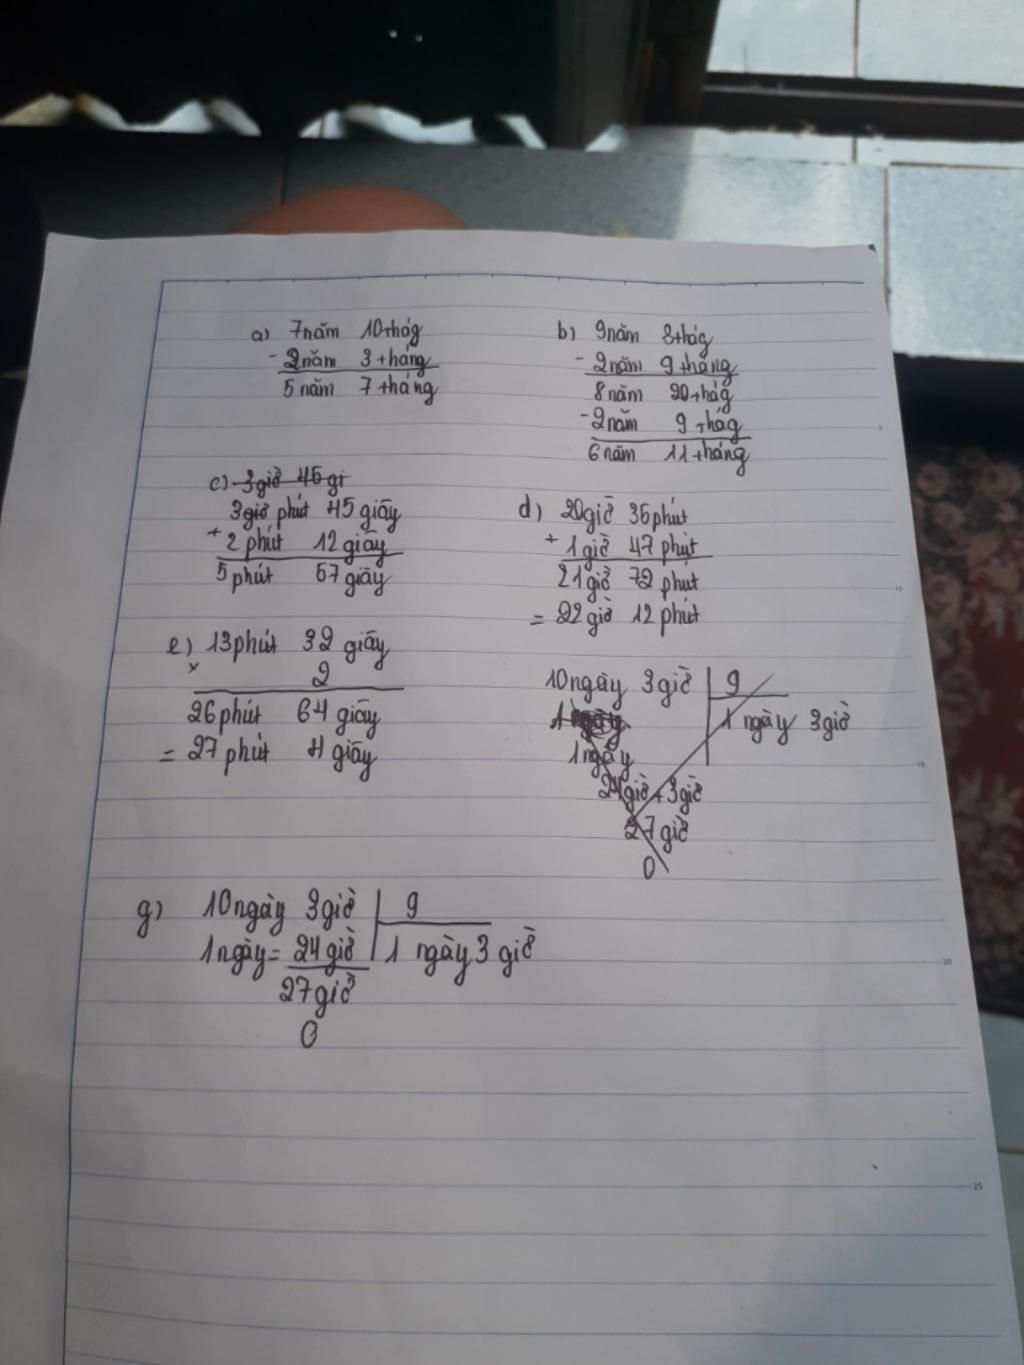 a) 7năm 10thág
- 2năm 3tháng
5 năm 7 tháng
b) 9năm 8thág
- 2năm 9 tháng
8 năm 20 thág
- 2năm 9 thág
6 năm 11 tháng
c) 3giờ 45 gi
3giờ phút 45 giây
+ 2 phút 12 giây
5 phút 57 giây
d) 20giờ 35 phút
+ 1 giờ 47 phút
21 giờ 72 phút
= 22 giờ 12 phút
e) 13phút 32 giây
x 2
26 phút 64 giây
= 27 phút 4 giây
10ngày 3giờ 9
1 ngày 1 ngày 3giờ
1ngày
24giờ + 3giờ
27 giờ
0
g) 10ngày 3giờ 9
1ngày = 24 giờ 1 ngày 3 giờ
27 giờ
0
5
10
15
20
25